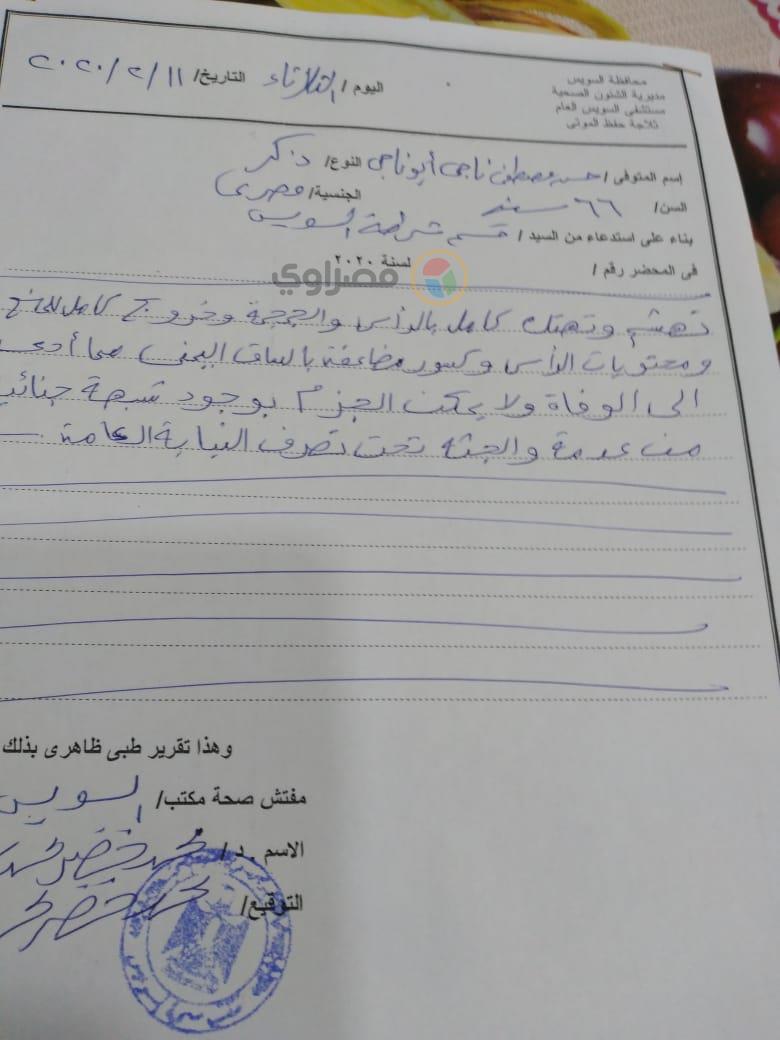 محافظة السويس
مديرية الشئون الصحية
مستشفى السويس العام
ثلاجة حفظ الموتى
اليوم / الثلاثاء التاريخ/ ٢٠٢٠/٢/١١
إسم المتوفى / حسن مصطفى ناجى أبو ناجى النوع/ ذكر
السن/ ٦٦ سنه الجنسية/ مصرى
بناء على استدعاء من السيد / قسم شرطة السويس
فى المحضر رقم / لسنة ٢٠٢٠
مصراوي
تهشم وتهتك كامل بالرأس والجمجمة وخروج كامل للمخ
ومحتويات الرأس وكسور مضاعفة بالساق اليمنى مما أدى
الى الوفاة ولا يمكن الجزم بوجود شبهة جنائية
من عدمة والجثه تحت تصرف النيابة العامة
وهذا تقرير طبى ظاهرى بذلك
مفتش صحة مكتب/ السويس
الاسم . د / محمد خضير
التوقيع/ محمد خضير